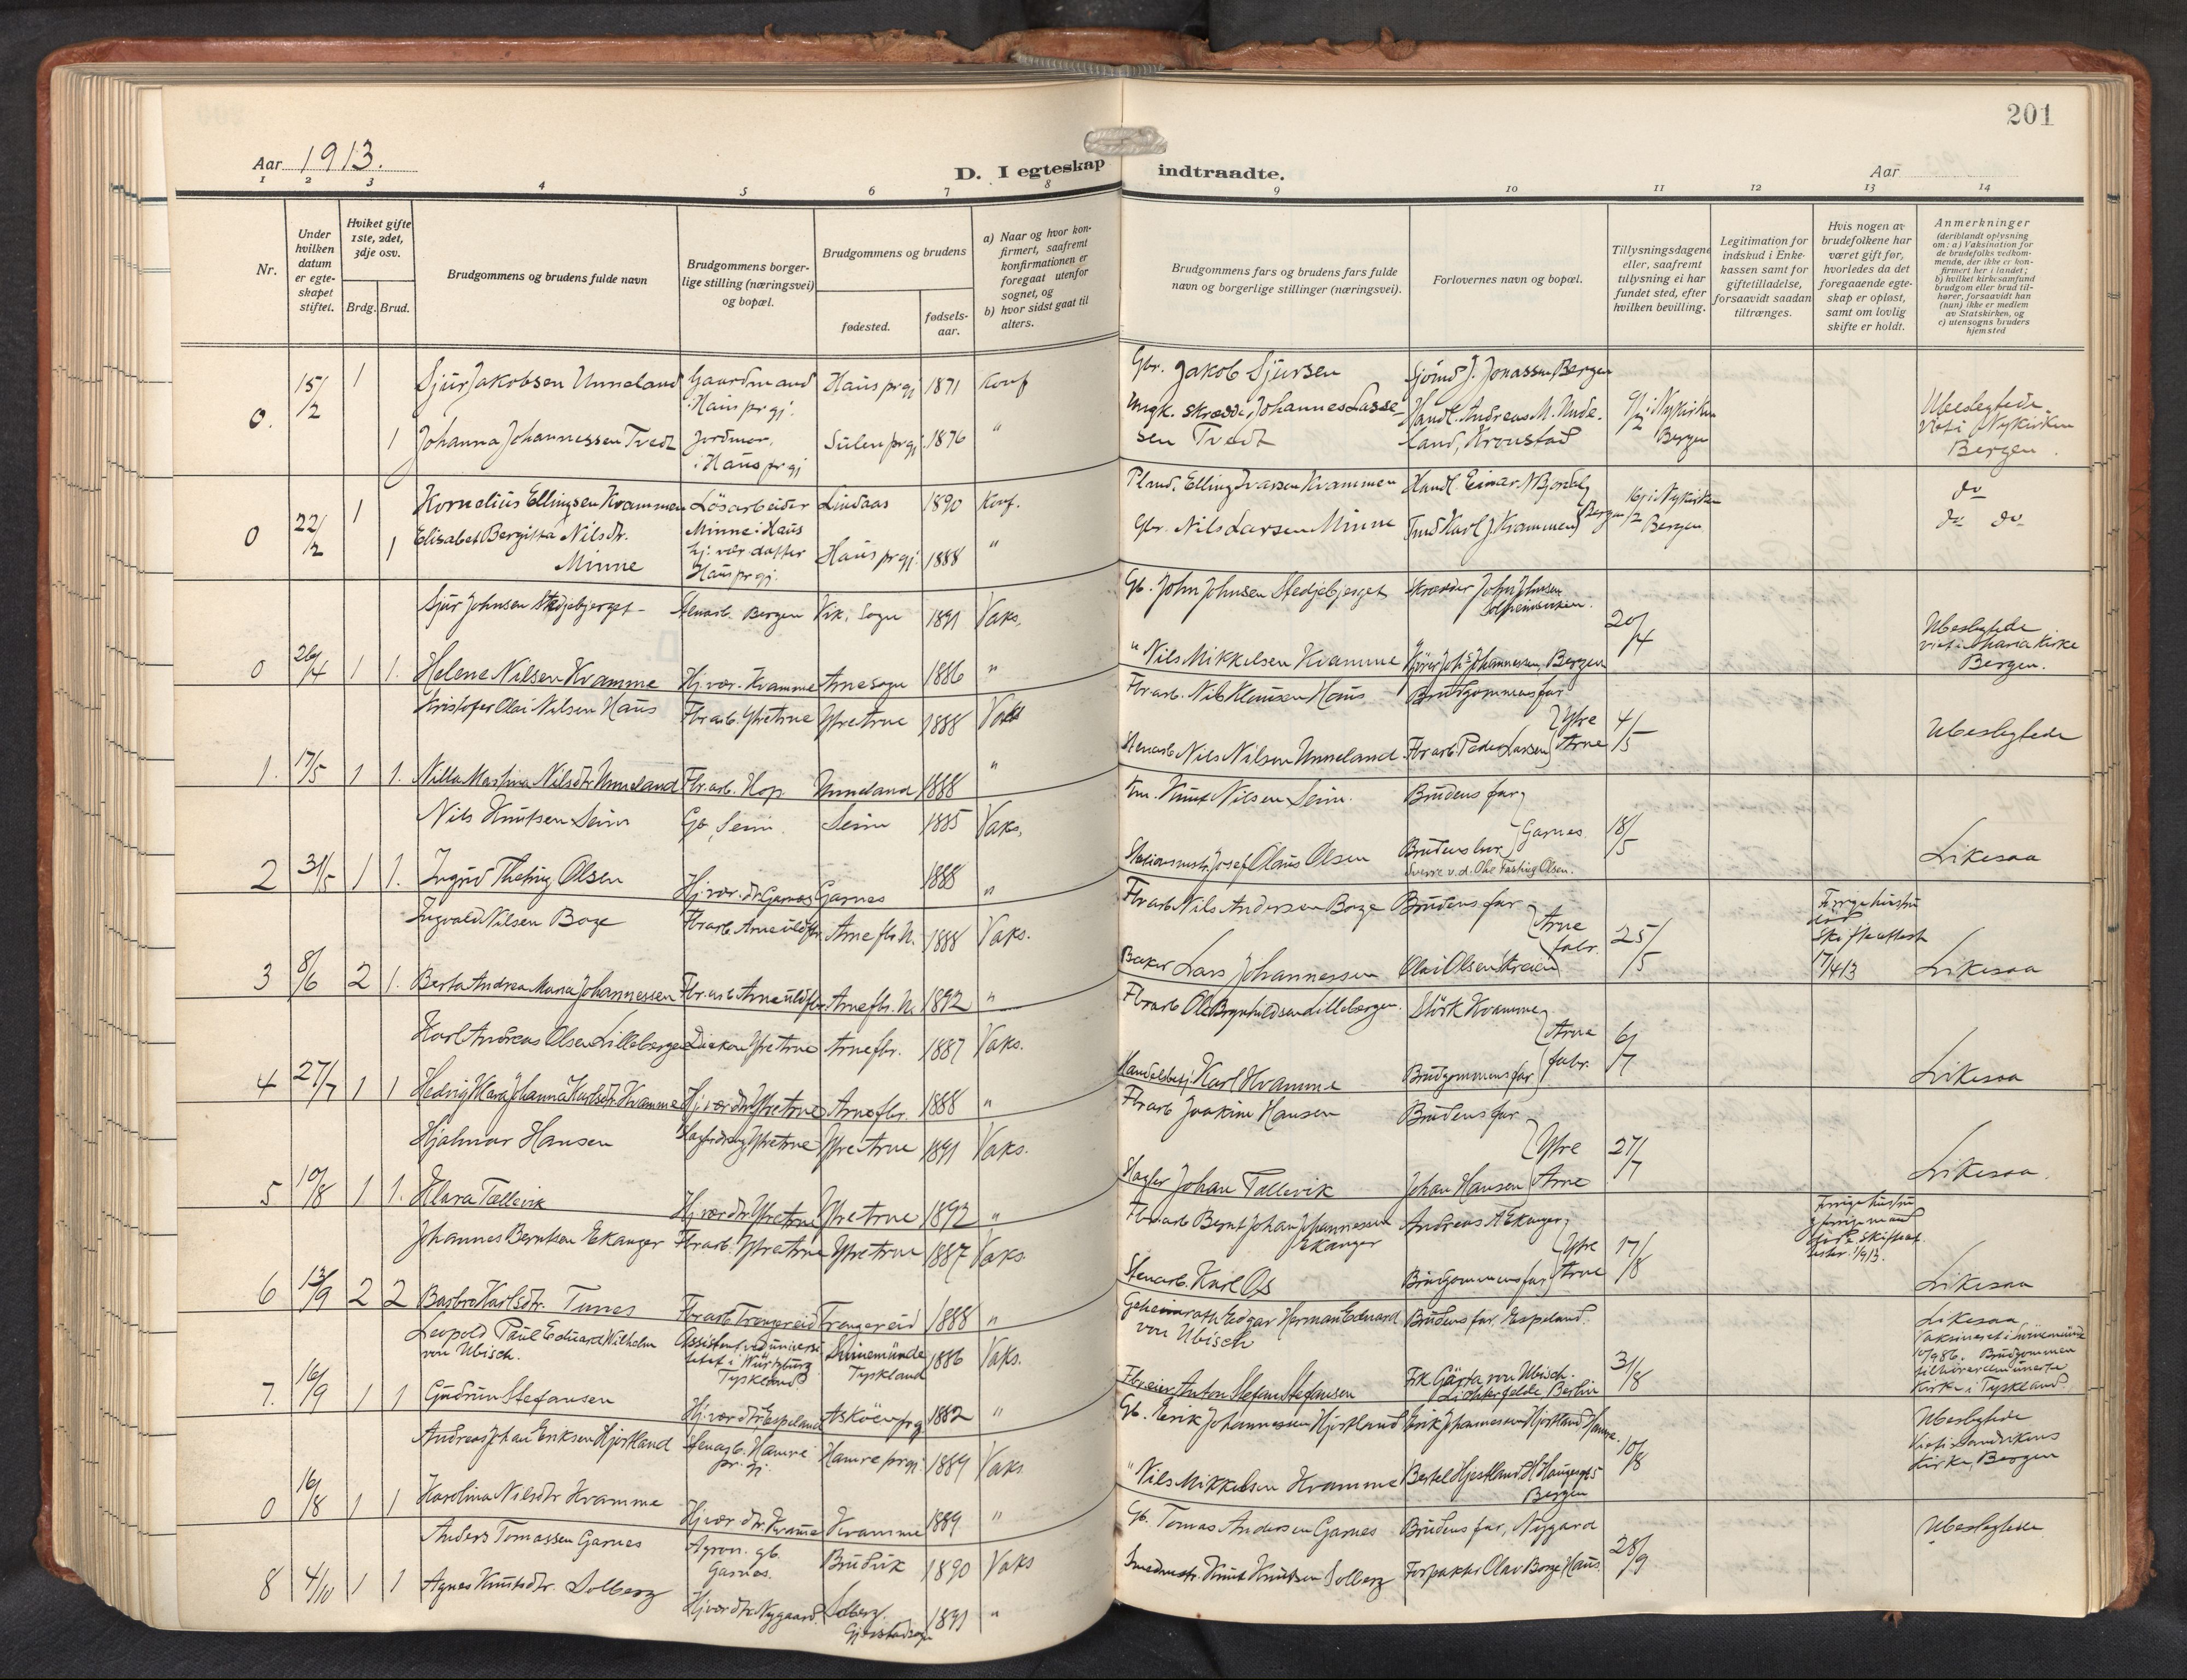 201
Aar 1913.
D. I egteskap indtraadte.
Aar
1 2 3 4 5 6 7 8 9 10 11 12 13 14
Nr.
Under hvilken datum er egteskapet stiftet.
Hviket gifte 1ste, 2det, 3dje osv.
Brdg. Brud.
Brudgommens og brudens fulde navn
Brudgommens borgerlige stilling (næringsvei) og bopæl.
Brudgommens og brudens
fødested.
fødselsaar.
a) Naar og hvor konfirmert, saafremt konfirmationen er foregaat utenfor sognet, og
b) hvor sidst gaat til alters.
Brudgommens fars og brudens fars fulde navn og borgerlige stillinger (næringsvei).
Forlovernes navn og bopæl.
Tillysningsdagene eller, saafremt tillysning ei har fundet sted, efter hvilken bevilling.
Legitimation for indskud i Enkekassen samt for giftetilladelse, forsaavidt saadan tiltrænges.
Hvis nogen av brudefolkene har været gift før, hvorledes da det foregaaende egteskap er opløst, samt om lovlig skifte er holdt.
Anmerkninger (deriblandt oplysning om: a) Vaksination for de brudefolks vedkommende, der ikke er konfirmert her i landet; b) hvilket kirkesamfund brudgom eller brud tilhører, forsaavidt han (hun) ikke er medlem av Statskirken, og c) utensogns bruders hjemsted
0. 15/2 1 Sjur Jakobsen Unneland Gaardmand i Haus prgj. Haus prgj 1871 Konf Gbr. Jakob Sjursen Sjömd J. Jonassen Bergen
1 Johanna Johannessen Tvedt Jordmor, i Haus prgj Sulen prgj. 1876 " Ungk. skrædder Johannes Lassesen Tvedt Handl. Andreas M. Undeland, Kronstad 9/2 i Nykirken Bergen Ubeslegtede Viet i Nykirken Bergen.
0 22/2 1 Kornelius Ellingsen Kvammen Lösarbeider Minne i Haus Lindaas 1890 Konf. Pladsm. Elling Ivarsen Kvammen Handl. Einar N Bjordal do
1 Elisabet Bergitta Nilsdtr. Minne hj. vær. datter Haus prgj. Haus prgj. 1888 " Gbr. Nils Larsen Minne Karl J. Kvammen Bergen 16/2 i Nykirken Bergen do do
Sjur Johnsen Stedjebjerget Stenarb. Bergen Vik i Sogn 1891 Vaks. Gb. John Johnsen Stedjebjerget Skrædder John Johnsen Solheimsviken. 20/4
0 26/4 1 1. Helene Nilsen Kvamme Hj. vær. Kvamme Arne sogn 1886 " " Nils Mikkelsen Kvamme Johs Johannessen, Bergen Ubeslegtede viet i Maria Kirke Bergen.
Kristofer Olai Nilsen Haus Fbrarb. Ytre Arne Ytre Arne 1888 Vaks Fbrarb. Nils Klausen Haus Brudgommens far
1. 17/5 1 1. Nilla Martina Nilsdtr Unneland Fbr.arb. Hop Unneland 1888 " Stenarb Nils Nilsen Unneland Fbrarb. Peder Larsen Ytre Arne 4/5 Ubeslegtede
Nils Knutsen Seim Gb, Seim. Seim 1885 Vaks. Knut Nilsen Seim. Brudens far Garnes 18/5
2 31/5 1 1. Ingrid Olsen Hj. vær. dtr Garnes Garnes 1888 " Stationsmstr Josef Olaus Olsen Brudens bror Sverre v. d. Ohe Fasting Olsen. Likesaa
Ingvald Nilsen Borge Fbrarb. Arne uldfbr. Arne fbr. 1888 Vaks. Fbrarb Nils Andersen Borge Brudens far Arne fabr. 25/5 Forrige hustru död Skifteattest 17/4 13
3 8/6 2 1. Berta Andrea Maria Johannessen Fbr.arb Arne uldfbr. Arne fbr. 1892 " Baker Lars Johannessen Olai Olsen Likesaa
Karl Andreas Olsen Lilleberge Diakon Ytre Arne Arne fbr. 1887 Vaks. Fbrarb Ole Brynhildsen Lillebergen. Störk Kvamme Arne fabr. 6/7
4 27/7 1 1 Hedvig Klara Johanna Karlsdtr. Kvamme Hj. vær dtr Ytre Arne Arne fbr. 1888 " Handelsbetj. Karl Kvamme Brudgommens far Likesaa
Hjalmar Hansen Ytre Arne Ytre Arne 1891 Vaks. Fbrarb Joakim Hansen Brudens far Ytre Arne 27/7
5 10/8 1 1. Klara Tællevik Hj. vær dtr. Ytre Arne Ytre Arne 1892 " Slagter Johan Tællevik Johan Hansen Likesaa.
Johannes Berntsen Ekanger Fbrarb. Ytre Arne Ytre Arne 1887 Vaks. Fbrarb Bernt Johan Johannessen Ekanger Andreas A Ekanger Ytre Arne 17/8 Forrige hustru & forrige mand döde. Skifteattester 1/9 13.
6 13/9 2 2 Barbra Karlsdtr. Tunes Fbrarb. Trengereid Trengereid 1888 " Stenarb. Karl Os Brudgommens far Likesaa
Leopold Paul Eduard Wilhelm von Ubisch. Assistent ved universitetet i Würzburg Tyskland Swinemünde Tyskland 1886 Vaks. Geheimrath Edgar Herman Eduard von Ubisch Brudens far. Espeland. 31/8 Likesaa, Vaksineret i Swinemünde Brudgommen tilhører den unerte Kirke i Tyskland.
7. 16/9 1 1 Gudrun Stefansen Hj. vær dtr Espeland Asköen prgj 1882 " Fbr.eier Anton Stefan Stefansen Frk Gärta von Ubisch. Lichterfelde, Berlin
Andreas Johan Eriksen Hjortland Stenarb. Hamre prgj. Hamre prgj. 1889 Vaks. Gb. Erik Johannessen Hjortland Erik Johannessen Hjortland Hamre. 10/8 Ubeslegtede Viet i Sandvikens Kirke, Bergen
0 16/8 1 1 Karolina Nilsdtr Kvamme Hj. vær dtr. Kvamme Kvamme 1889 " " Nils Mikkelsen Kvamme Bertel Hjortland Bergen
Anders Tomassen Garnes Agron. gb. Garnes. Brudvik 1890 Vaks Gb. Tomas Andersen Garnes Brudens far, Nygard 28/9 Ubeslegtede
8 4/10 1 1 Agnes Knutsdtr. Solberg Hj vær dtr Nygaard. Solberg. Gjerstad sogn 1891 " Knut Knutsen Solberg Forpakter Olav Borge, Haus.